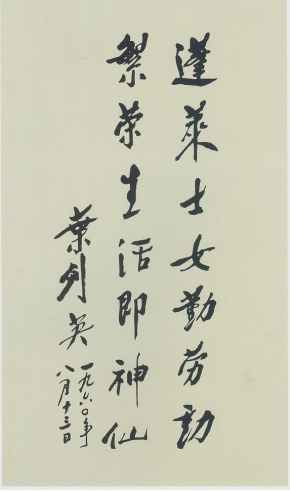 蓬莱士女勤劳动
繁荣生活即神仙
葉列英
一九六〇年
八月十三日